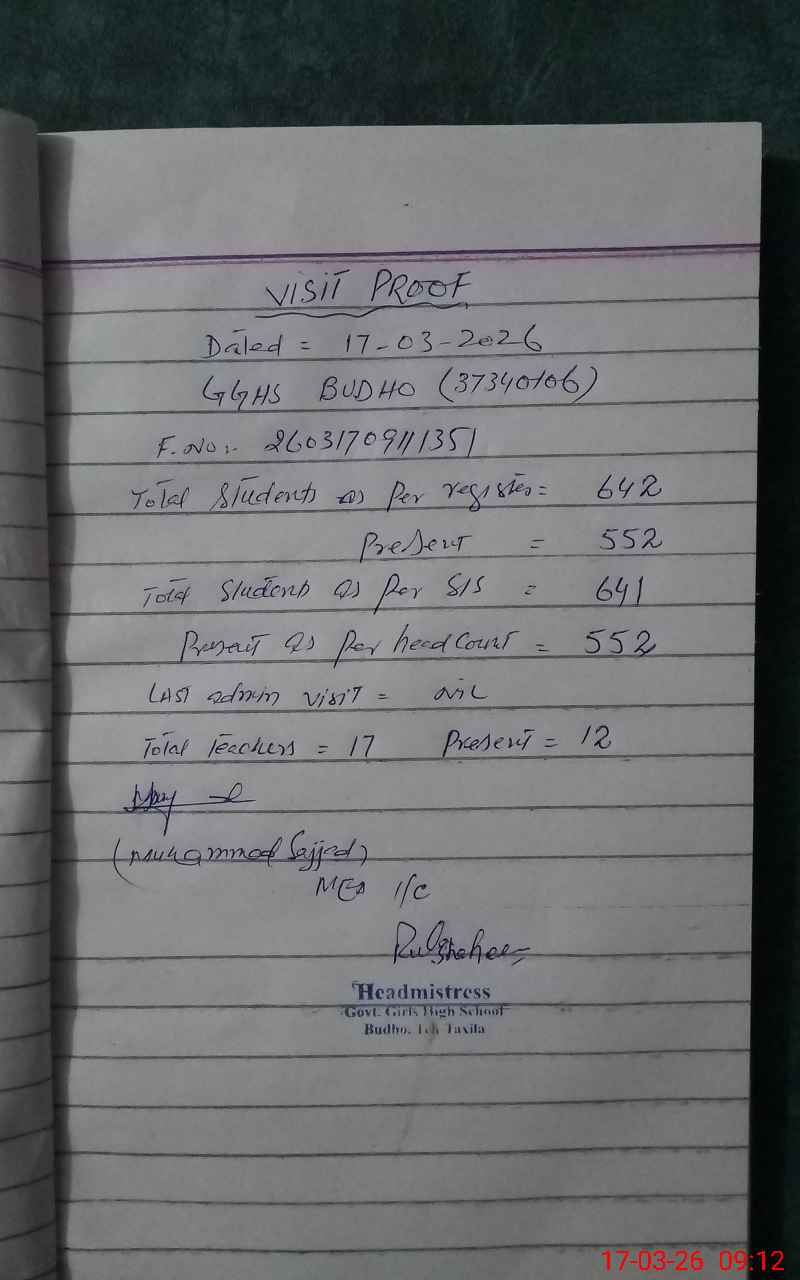 VISIT PROOF
Dated = 17-03-2026
GGHS BUDHO (37340106)
F.No:- 26031709111351
Total Students as per register = 642
Present = 552
Total Students as per SIS = 641
Present as per head count = 552
Last admin visit = Nil
Total Teachers = 17 Present = 12
(Muhammad Sajjad)
MEA I/C
Headmistress
Govt. Girls High School
Budho. Teh Taxila
17-03-26 09:12